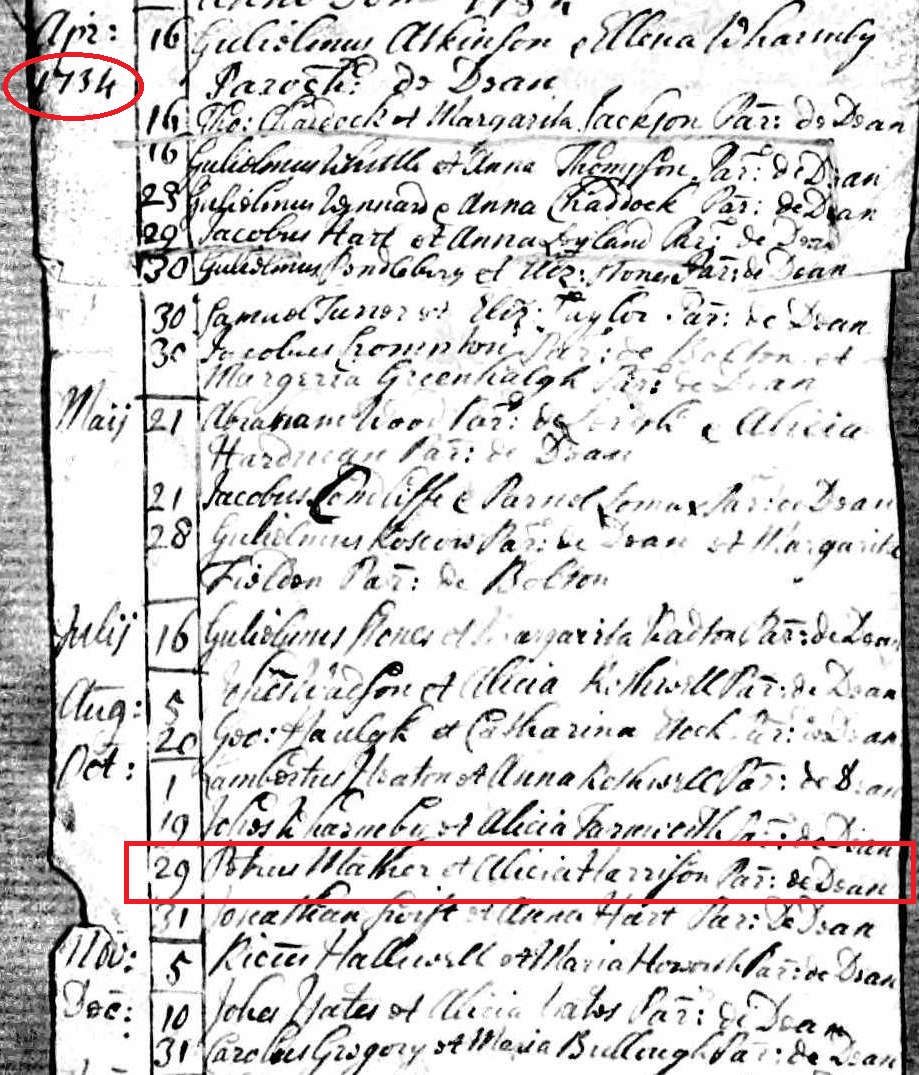 Apr: 16 Gulielmus Atkinson e Ellena Wharmby
1734 Paroch: de Dean
16 Tho: Chadock et Margarita Jackson Par: de Dean
16 Gulielmus Whittle et Anna Thompson Par: de Dean
23 Gulielmus e Anna Chaddock Par: de Dean
29 Jacobus Hart et Anna Leyland Par: de Dean
30 Gulielmus Pendlebury et Eliz: Stones Par: de Dean
30 Samuel Turner et Eliz: Taylor Par: de Dean
30 Jacobus Crompton Par: de Bolton et
Margeria Greenhalgh Par: de Dean
Maij 21 Abraham Wood Par: de Leigh e Alicia
Hardman Par: de Dean
21 Jacobus e Parnel Lomax Par: de Dean
28 Gulielmus Roscow Par: de Dean et Margarita
Fielden Par: de Bolton
Julij 16 Gulielmus Stones et Margarita Par: de Dean
Aug: 5 et Alicia Rothwell Par: de Dean
20 Geo: et Catharina Par: de Dean
Oct: 1 Lambertus Heaton et Anna Rothwell Par: de Dean
19 Johes Wharmby et Alicia Farnworth Par: de Dean
29 Petrus Mather et Alicia Harrison Par: de Dean
31 Jonathan Swift et Anna Hart Par: De Dean
Nov: 5 Ricus Halliwell et Maria Howorth Par: de Dean
Dec: 10 Johes Yates et Alicia Yates Par: de Dean
31 Carolus Gregory et Maria Bullough Par: de Dean